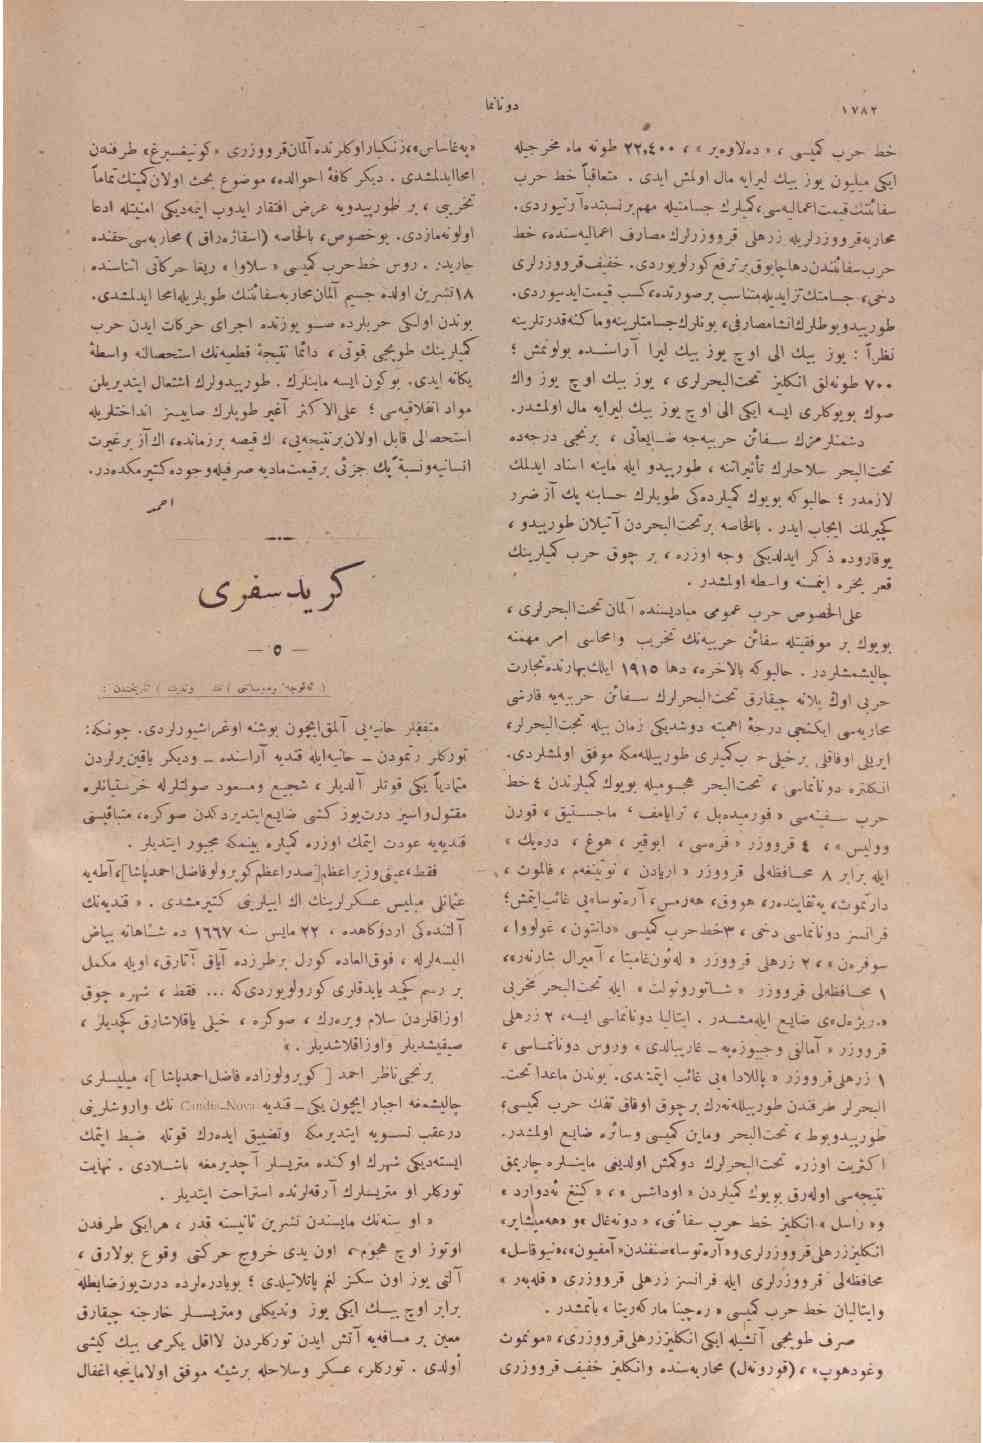 ١٧٨٢
دونانما
خط حرب كميسی ، « ده‌لاوه‌ر » ، ٢٢,٤٠٠ طونه ماه مخرجيله
ايكی ميليون يوز بيك ليرايه مال اولمش ايدی . متعاقباً خط حرب
سفائننك قيمت اعماليه‌سی، كميلرك جسامتيله مهم بر نسبتده آرتيوردی.
محاربه قروواز‌رلريله زرهلی قرووزرلرك مصارف اعماليه‌سنده، خط
حرب سفائنندن دها چابوق بر ترفع كورلويوردی. خفيف قرووزرلری
دخی، جسامتك تزايديله متناسب بر صورتده، كسب قيمت ايديوردی.
طورپيدوبوطلرك انشا مصارفی، بونلرك جسامتلرينه و ماكنه قدرتلرينه
نظراً : يوز بيك الی اوچ يوز بيك ليرا آراسنده بولونمش ؛
٧٠٠ طونه‌لق انكليز تحت‌البحرلری ، يوز بيك اوچ يوز واك
صوك بويوكلری ايسه ايكی الی اوچ يوز بيك ليرايه مال اولمشدر.
دشمنلرمزك سفائن حربيه‌جه ضايعاتی ، برنجی درجه‌ده
تحت‌البحر سلاحلرك تأثيراتنه ، طورپيدو ايله ماينه اسناد ايدلمك
لازمدر ؛ حالبوكه بويوك كميلرده‌كی طوپلرك حسابنه پك آز ضرر
كچيرلمك ايجاب ايدر . بالخاصه بر تحت‌البحردن آتيلان طورپيدو ،
يوقاروده ذكر ايدلديكی وجه اوزره ، بر چوق حرب كميلرينك
قعر بحره ايتمسنه واسطه اولمشدر .
علی‌الخصوص حرب عمومی مباديسنده آلمان تحت‌البحرلری ،
بويوك بر موفقيتله سفائن حربيه‌نك تخريب وامحاسی امر مهمنه
چاليشمشلردر . حالبوكه بالاخره، دها ١٩١٥ ايلك‌بهارنده تجارت
حربی اوك پلانه چيقارق تحت‌البحرلرك سفائن حربيه‌يه قارشی
محاربه‌سی ايكنجی درجۀ اهميته دوشديكی زمان بيله تحت‌البحرلر،
ايريلی اوفاقلی برخيلی حرب كميلری طورپيلله‌مكه موفق اولمشلردی.
انكلتره دونانماسی ، تحت‌البحر هجوميله بويوك كميلرندن ٤ خط
حرب سفينه‌سی « فورميده‌بل ، ترايامف ، ماجستيق ، قورن
ووليس » ، ٤ قرووزر « قره‌سی ، ابوقير ، هوغ ، دره‌يك »
ايله برابر ٨ محافظه‌لی قرووزر « اريادن ، نوتينغهم ، فالموت ،
دارتموت، په‌نفايندهر، هووق، هه‌رمس، آره‌توسا» يی غائب ايتمش؛
فرانسز دونانماسی دخی ، ٣ خط حرب كميسی «دانتون ، غولووا ،
سوفره‌ن » ، ٢ زرهلی قرووزر « له‌ئون غامبتا ، آميرال شارنه‌ر»،
١ محافظه‌لی قرووزر « شاتورونولت » ايله تحت‌البحر مخربی
ضايع ايله‌مشدر . ايتاليا دونانماسی ايسه، ٢ زرهلی
قرووزر « آمالفی و جيوزه‌په – غاريبالدی » وروس دونانماسی ،
١ زرهلی قرووزر « پاللادا » يی غائب ايتمشدی. بوندن ماعدا تحت.
البحرلر طرفندن طورپيلله‌نه‌رك بر چوق اوفاق تفك حرب كميسی،
طورپيدوبوط ، تحت‌البحر وماين كميسی وسائره ضايع اولمشدر.
اكثريت اوزره تحت‌البحرلرك دوكمش اولديغی ماينلره چارپمق
نتيجه‌سی اوله‌رق بويوك كميلردن « اوداشس » ، « كينغ نه‌دوارد »
و« راسل » انكليز خط حرب سفائنی، « دونه‌غال » و « هه‌مپشاير،
انكليز زرهلی قرووزرلری و« آره‌توسا» صنفندن « آمفيون»، «نيوقاسل»
محافظه‌لی قرووزرلری ايله فرانسز زرهلی قرووزری « قله‌به‌ر »
وايتاليان خط حرب كميسی « ره‌چينا ماركه‌ريتا » باتمشدر .
صرف طوپجی آتشيله ايكی انكليز زرهلی قرووزری، «مونموث
وغودهوپ» ، (قورونه‌ل) محاربه‌سنده وانكليز خفيف قرووزری
«په‌غاساس»، زنكبار اوكلرنده آلمان قرووزری « كونيغسبرغ» طرفندن
امحا ايدلمشدی . ديكر كافۀ احوالده، موضوع بحث اولان كمينك تماماً
تخريبی ، بر طورپيدويه عرض افتقار ايدوب ايتمه‌ديكی امنيتله ادعا
اولونه‌مازدی. بو خصوص، بالخاصه (اسقاژه‌راق ) محاربه‌سی حقنده
جاريدر . روس خط حرب كميسی « سلاوا » ريغا حركاتی اثناسنده
١٨ تشرين اولده جسيم آلمان محاربه سفائننك طوپلريله امحا ايدلمشدی.
بوندن اولكی حربلرده صو يوزنده اجرای حركات ايدن حرب
كميلرينك طوپجی قوتی ، دائما نتيجۀ قطعيه‌نك استحصالنه واسطۀ
يكانه ايدی. بوكون ايسه ماينلرك . طورپيدولرك اشتعال ايتديريلن
مواد انفلاقيه‌سی ؛ علی الاكثر آغير طوپلرك صايسز انداختلريله
استحصالی قابل اولان بر نتيجه‌يی، اك قيصه بر زمانده، اك آز بر غيرت
انسانيه ونسبةً پك جزئی بر قيمت ماديه صرفيله وجوده كتيرمكده‌در.
احمد
كريد سفری
— ٥ —
متفقلر حانيه‌يی آلمق ايچون بوشنه اوغراشيورلردی. چونكه:
توركلر رتمودن – حانيه ايله قنديه آراسنده – وديكر ياقين يرلردن
متمادياً يكی قوتلر آلديلر ، شجيع ومسعود صولتلرله خرستيانلره
مقتول واسير درت يوز كشی ضايع ايتديردكدن صوكره، متباقيسنی
قنديه‌يه عودت ايتمك اوزره كميلره بينمكه مجبور ايتديلر .
فقط، عينی وزير اعظم [صدر اعظم كوپرولو فاضل احمد پاشا]، آطه‌يه
عثمانلی ميليس عسكرلرينك اك ايبيلرينی كتيرمشدی . « قنديه‌نك
آلتنده‌كی اردوكاهده ، ٢٢ مايس سنه ١٦٦٧ ده شاهانه بياض
البسه‌لرله ، فوق‌العاده كوزل بر طرزده آياق آتارق، اويله مكمل
بر رسم كچيد ياپدقلری كورولويوردی‌كه ... فقط ، شهره چوق
اوزاقلردن سلام ويره‌رك ، صوكره ، خيلی ياقلاشارق كچديلر ،
صيقيشديلر واوزاقلاشديلر . »
برنجی ناظر احمد [ كوپرولوزاده فاضل احمد پاشا ]، ميليسلری
چاليشمغه اجبار ايچون يكی – قنديه Candia-Nova نك واروشلرينی
درعقب تسويه ايتديرمكه وتضييق ايده‌رك قوتله ضبط ايتمك
ايسته‌ديكی شهرك اوكنده متريسلر آچديرمغه باشلادی . نهايت
توركلر او متريسلرك آرقه‌لرنده استراحت ايتديلر .
« او سنه‌نك مايسندن تشرين ثانيسنه قدر ، هر ايكی طرفدن
اوتوز اوچ هجوم ، اون يدی خروج حركتی وقوع بولارق ،
آلتی يوز اون سكز لغم پاتلاتيلدی ؛ بو بادره‌لرده درت يوز ضابطله
برابر اوچ بيك ايكی يوز ونديكلی ومتريسلر خارجنه چيقارق
معين بر مسافه‌يه آتش ايدن توركلردن لااقل يكرمی بيك كيشی
اولدی . توركلر، عسكر وسلاحله برشيئه موفق اولاماينجه اغفال